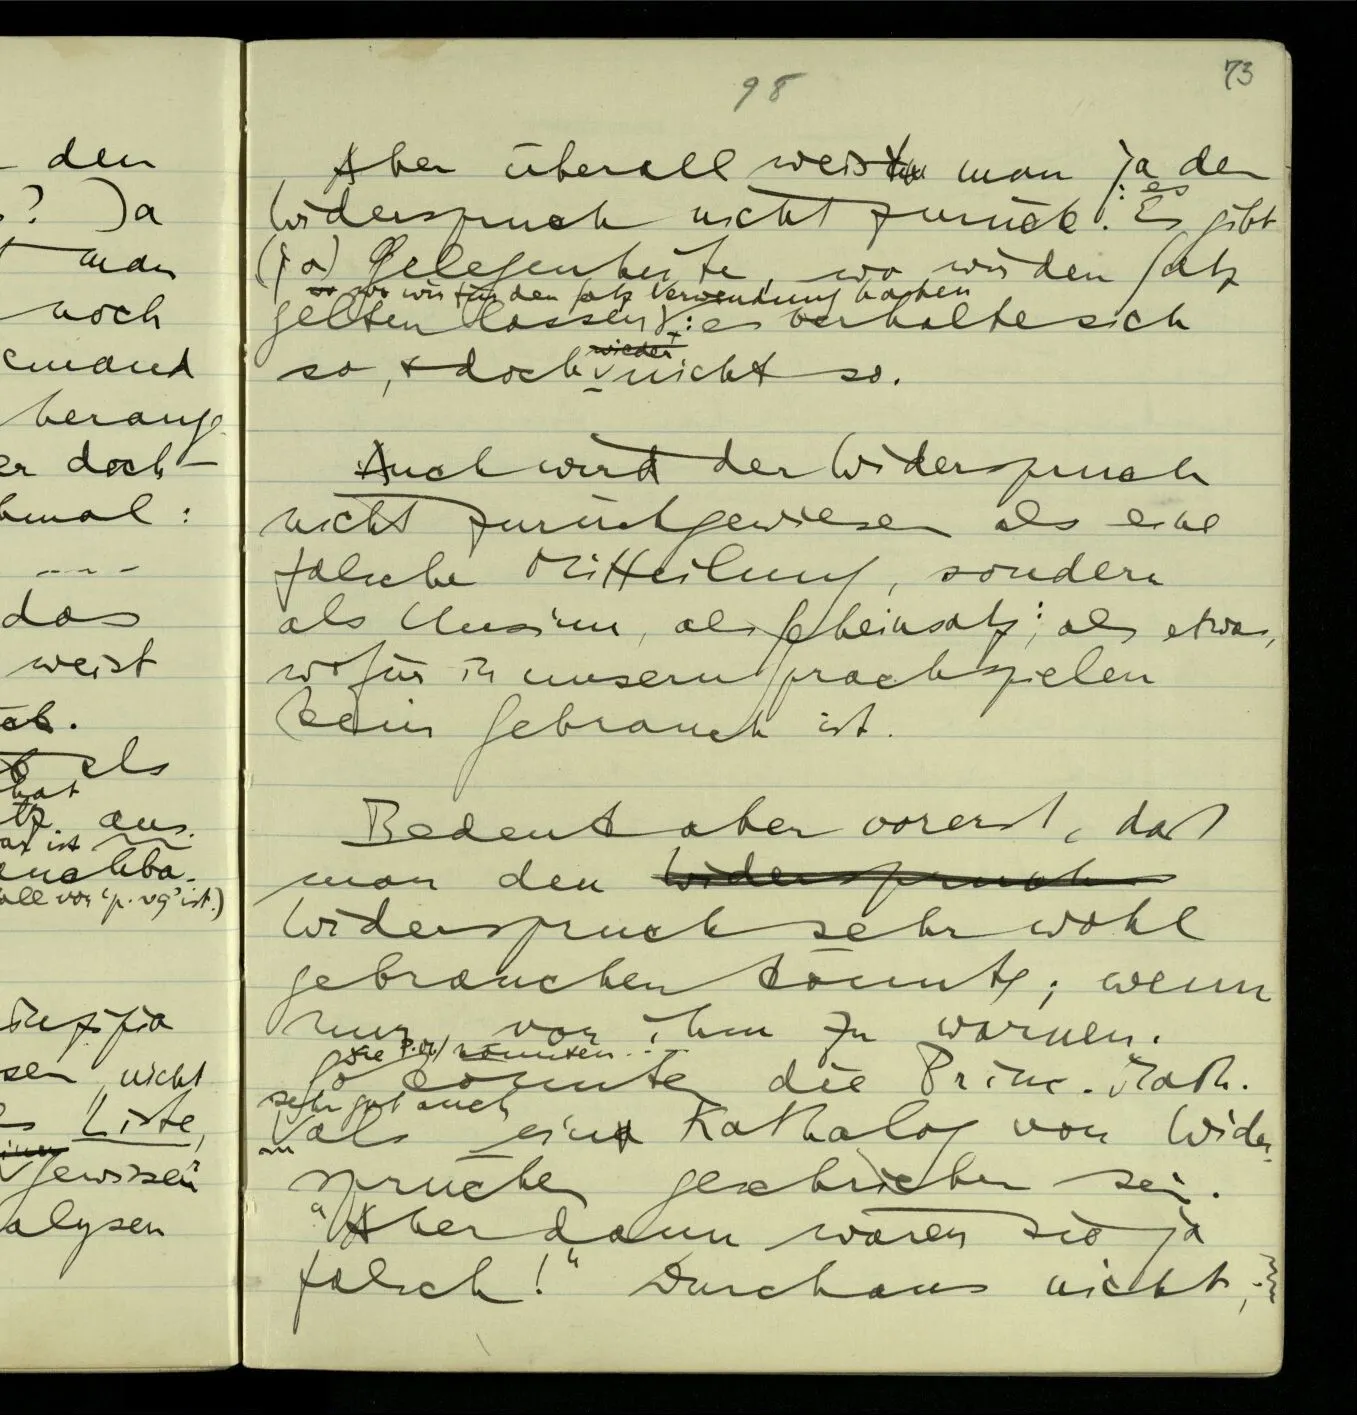 den
? Ja
man
noch
emand
herausge
er doch –
hmal :
- - - -
das
weist
als
hat
aus.
ist
all von 'p.~q' ist.)
nicht
Liste,
gewissen
alysen
98
73
Aber überall weist man ja den
Widerspruch nicht zurück: es gibt
(ja) Gelegenheiten, wo wir den Satz
wo wir für den Satz Verwendung haben
gelten lassen: es verhalte sich
so, & doch wieder nicht so.
Auch wird der Widerspruch
nicht zurückgewiesen als eine
falsche Mitteilung, sondern
als Unsinn, als Scheinsatz; als etwas,
wofür in unsern Sprachspielen
kein Gebrauch ist.
Bedenk aber vorerst, daß
man den Widerspruch
Widerspruch sehr wohl
gebrauchen könnte; wenn
nur, vor ihm zu warnen.
die P.M. könnten ...
So könnte die Princ. Math.
sehr gut auch
als ein Kathalog von Wider-
sprüchen geschrieben sein.
"Aber dann wären sie ja
falsch!" Durchaus nicht,